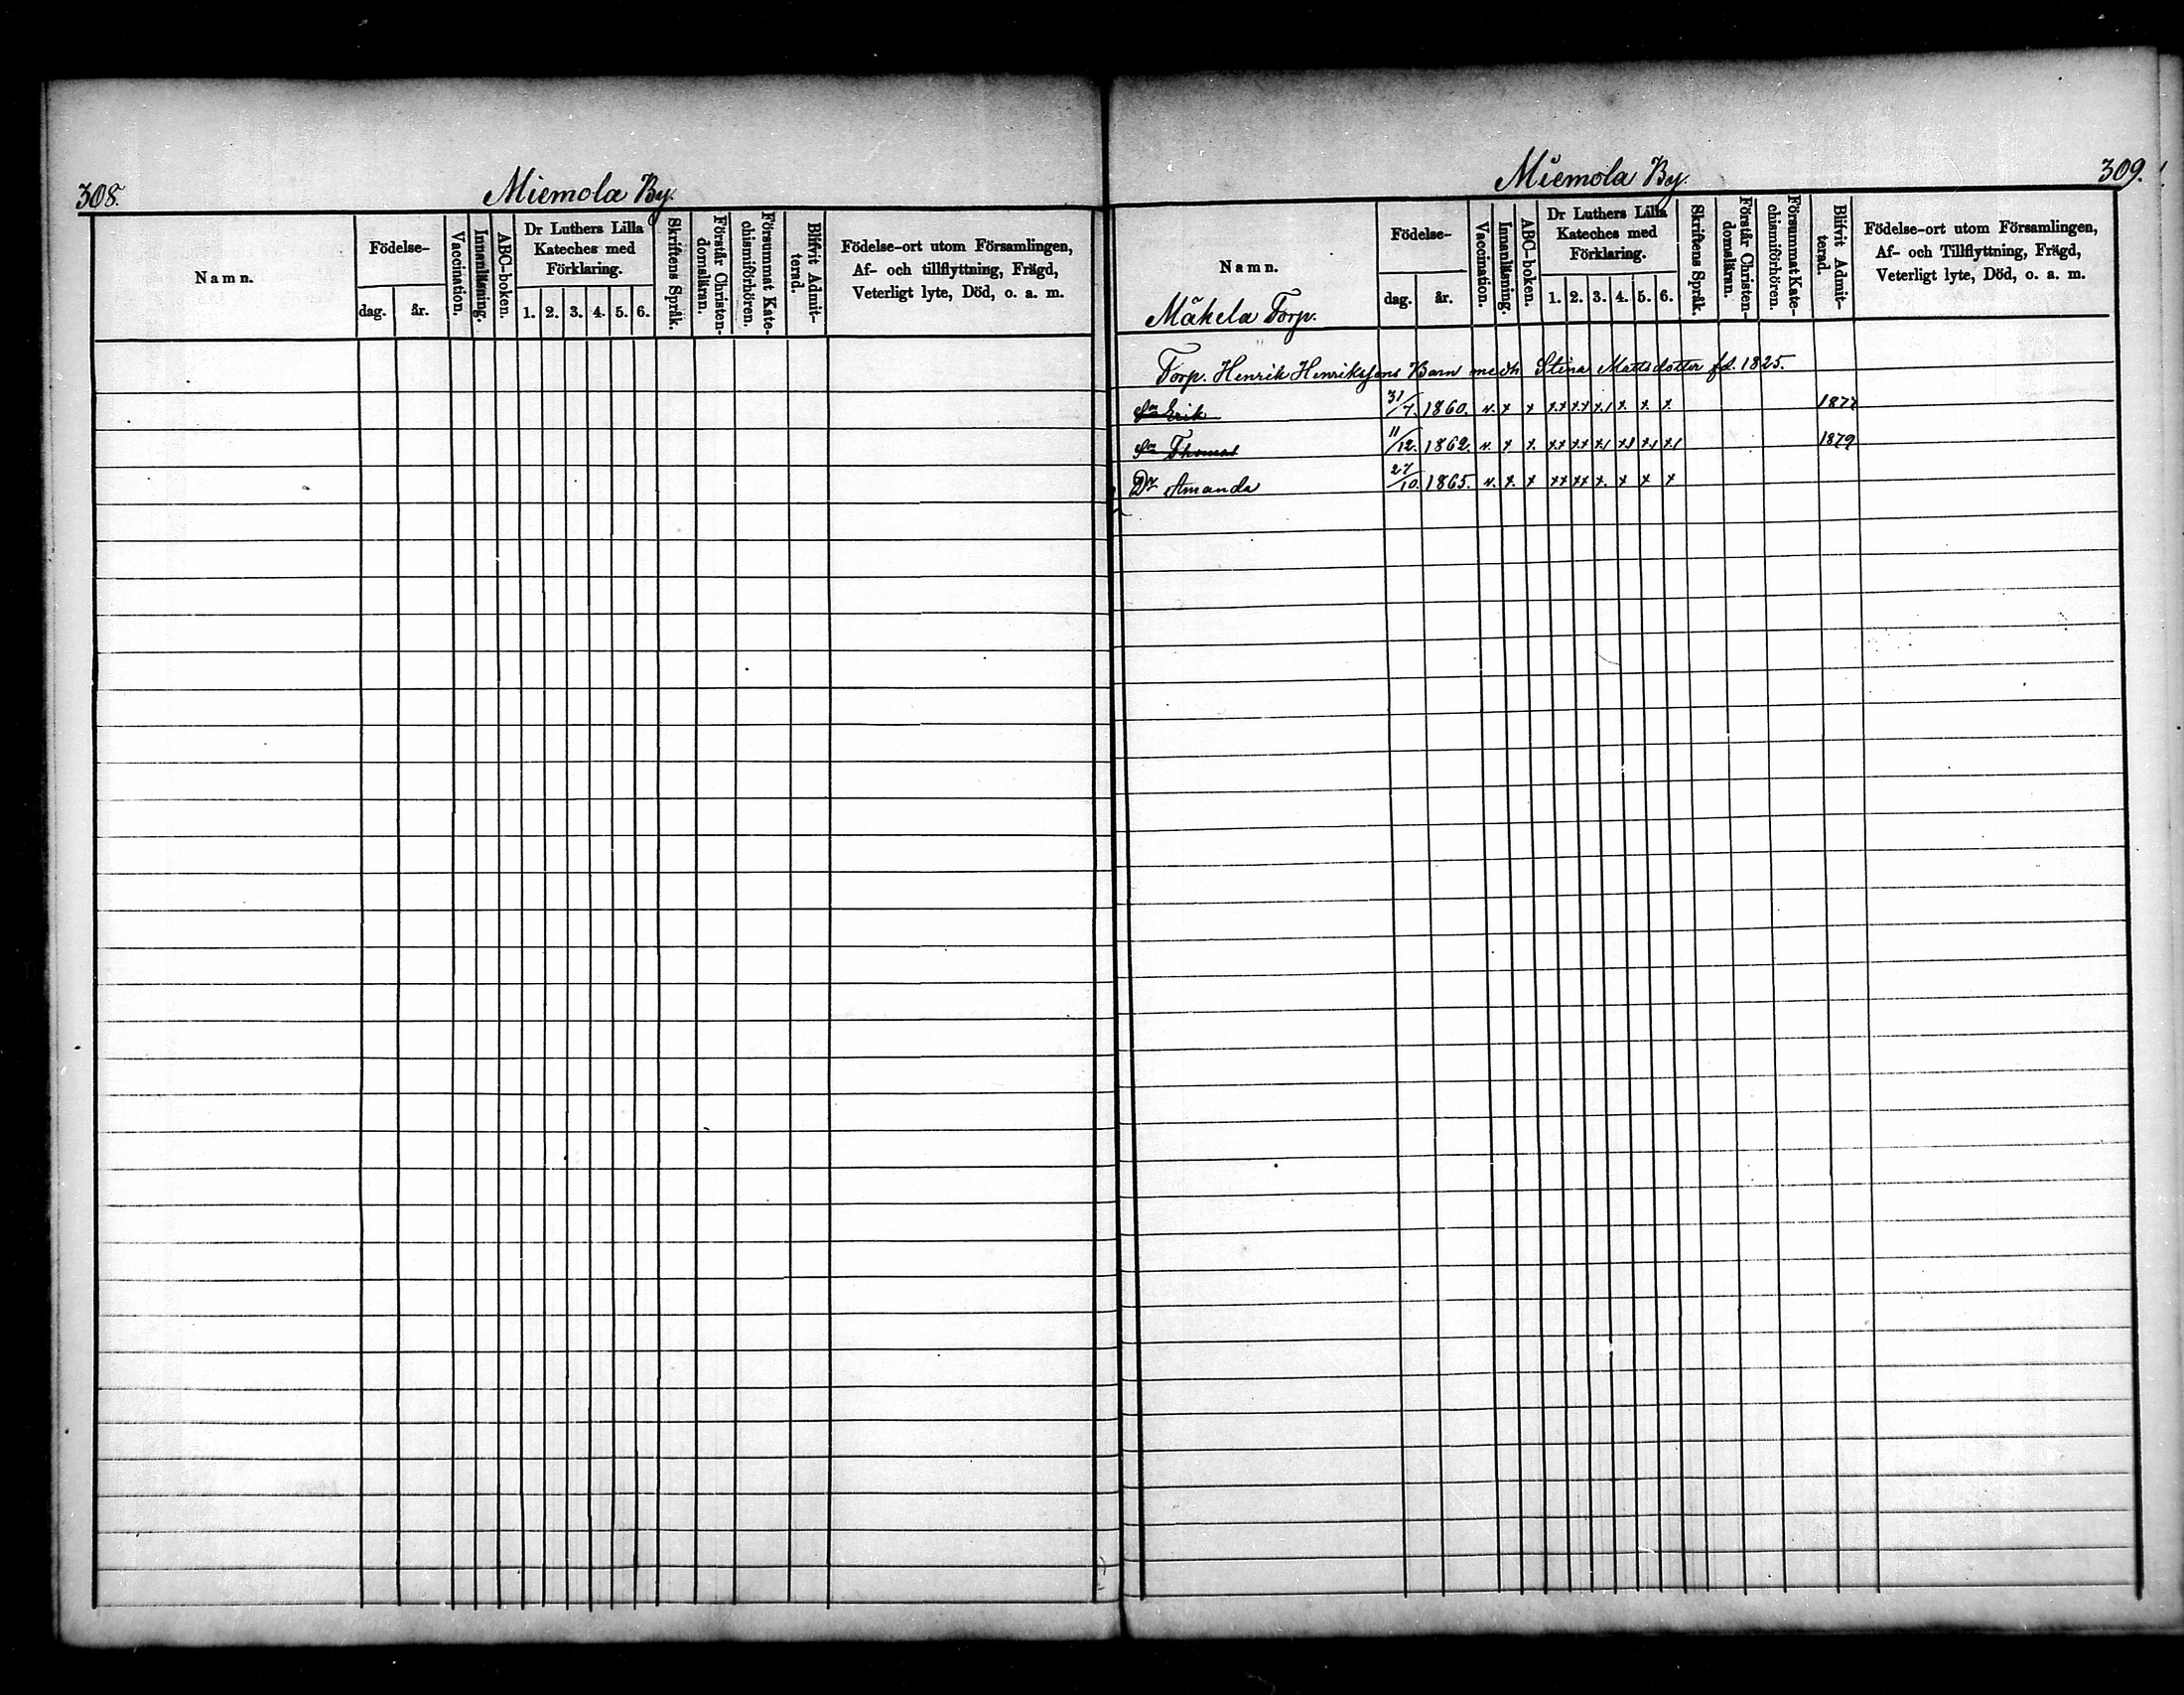 308.
Miemola By.
Namn.
Födelse-
dag. år.
Vaccination.
Innanläsning.
ABC-boken.
Dr Luthers Lilla
Kateches med
Förklaring.
1. 2. 3. 4. 5. 6.
Skriftens Språk.
Förstår Christen-
domsläran.
Försummat Kate-
chismiförhören.
Blifvit Admit-
terad.
Födelse-ort utom Församlingen,
Af- och tillflyttning, Frägd,
Veterligt lyte, Död, o. a. m.
309.
Miemola By.
Namn.
Mähelä Torp.
Födelse-
dag. år.
Vaccination.
Innanläsning.
ABC-boken.
Dr Luthers Lilla
Kateches med
Förklaring.
1. 2. 3. 4. 5. 6.
Skriftens Språk.
Förstår Christen-
domsläran.
Försummat Kate-
chismiförhören.
Blifvit Admit-
terad.
Födelse-ort utom Församlingen,
Af- och Tillflyttning, Frägd,
Veterligt lyte, Död, o. a. m.
Torp. Henrik Henrikssons Barn med h. Stina Mattsdotter fd. 1825.
Sn Erik 31/7. 1860. v. x x x.x x.x x./ x. x. x. 1877
Sn Thomas 11/12. 1862. v. x x. xx x.x x./ x/ x/ x/ 1879
Dr Amanda 27/10. 1865. v. x. x xx xx x. x x x